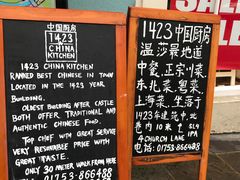 中国厨房
1423
CHINA
KITCHEN
1423 CHINA KITCHEN
RANKED BEST CHINESE IN TOWN
LOCATED IN THE 1423 YEAR
BUILDING.
OLDEST BUILDING AFTER CASTLE
BOTH OFFER TRADITIONAL AND
AUTHENTIC CHINESE FOOD.
TOP CHEF WITH GREAT SERVICE
VERY RESONABLE PRICE WITH
GREAT TASTE.
ONLY 30 METER WALK FROM HERE
01753-866488
1423中国厨房
温莎最地道
中餐，正宗川菜，
东北菜，粤菜，
上海菜，坐落于
1423年建筑中，北
巷内10米
4 CHURCH LANE
电话：01753-866488